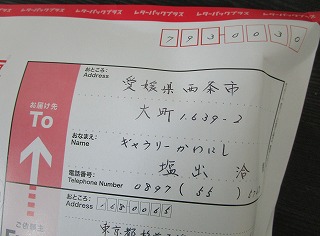 レターパックプラス レターパックプラス レターパックプラス レターパックプラス
793-0030
おところ:
Address
愛媛県西条市
大町1639-2
お届け先
To
おなまえ:
Name
ギャラリーかわにし
塩出
電話番号:
Telephone Number
0897(55)
ご依頼主
おところ:
Address
1680065
東京都杉並